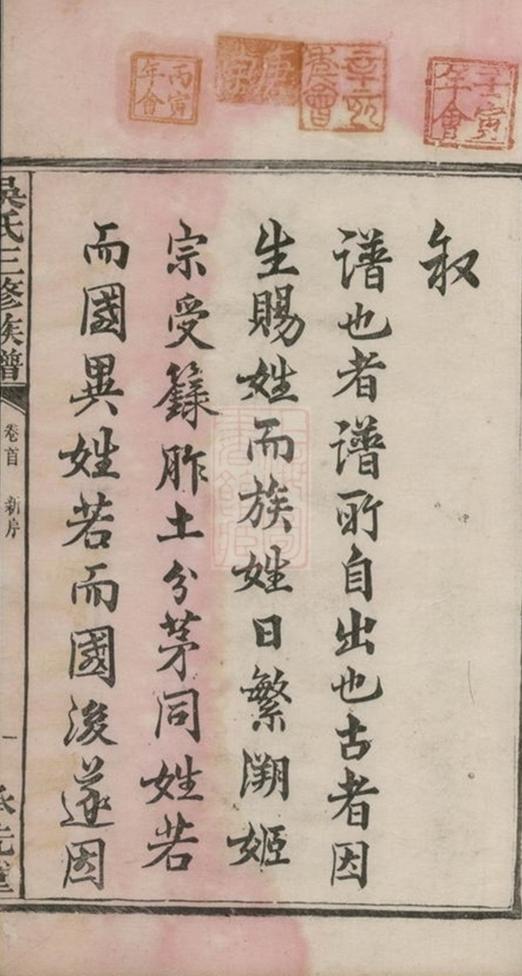 壬寅年會
辛巳年會
丙寅年會
叙
譜也者譜所自出也古者因
生賜姓而族姓日繁溯姬
宗受籙胙土分茅同姓若
而國異姓若而國後遂因
吳氏三修族譜
卷首
新序
一